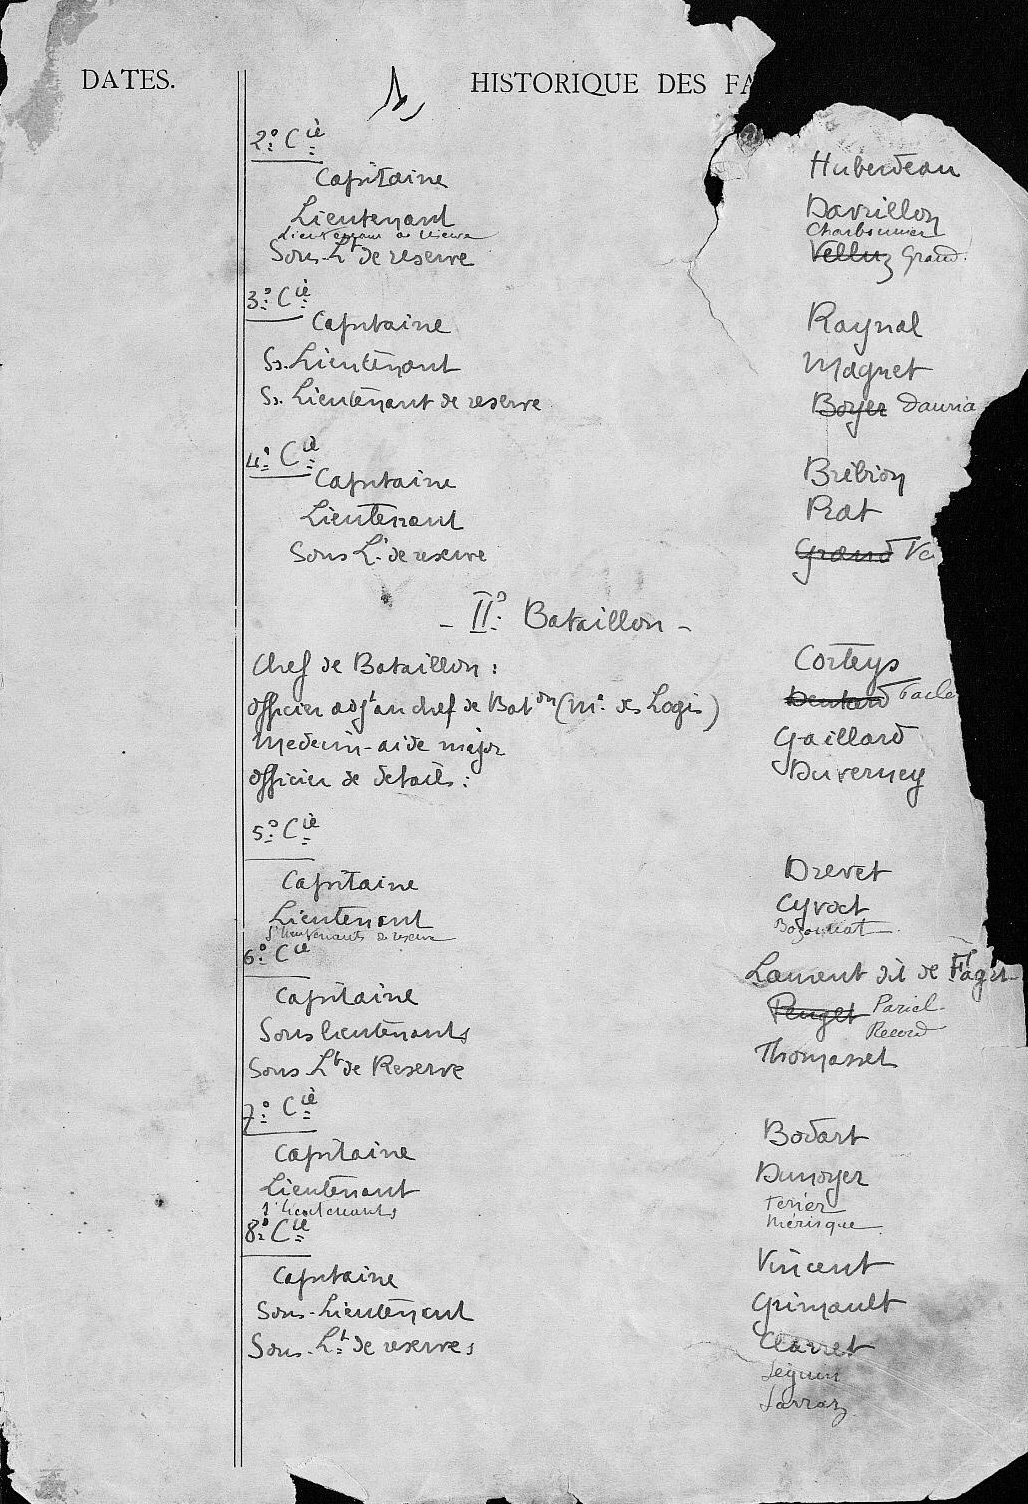 DATES. HISTORIQUE DES FA
2e Cie
Capitaine Huberdeau
Lieutenant Davrillon
Lieutenant de réserve Charbonnier
Sous-Lt de reserve Velluz Grand.
3e Cie
Capitaine Raynal
Ss. Lieutenant Magnet
Ss. Lieutenant de reserve Boyer Dauria
4e Cie
Capitaine Brébion
Lieutenant Prat
Sous Lt de reserve Grand Ve
- IIe Bataillon -
Chef de Bataillon : Corteys
Officier adjt au chef de Baton (Mal des Logis)
Medecin-aide major Gaillard
Officier de details : Duverney
5e Cie
Capitaine Drevet
Lieutenant Cyvoct
S/lieutenants de reserve
6e Cie
Capitaine Lament dit de Faget
Sous lieutenants Pariel
Record
Sous Lt de Reserve Thomasset
7e Cie
Capitaine Bodart
Lieutenant Dunoyer
S/lieutenants Terier
Mérisque
8e Cie
Capitaine Vincent
Sous-Lieutenant Grimault
Sous-Lt de reserves Clarret
Seguin
Sarraz